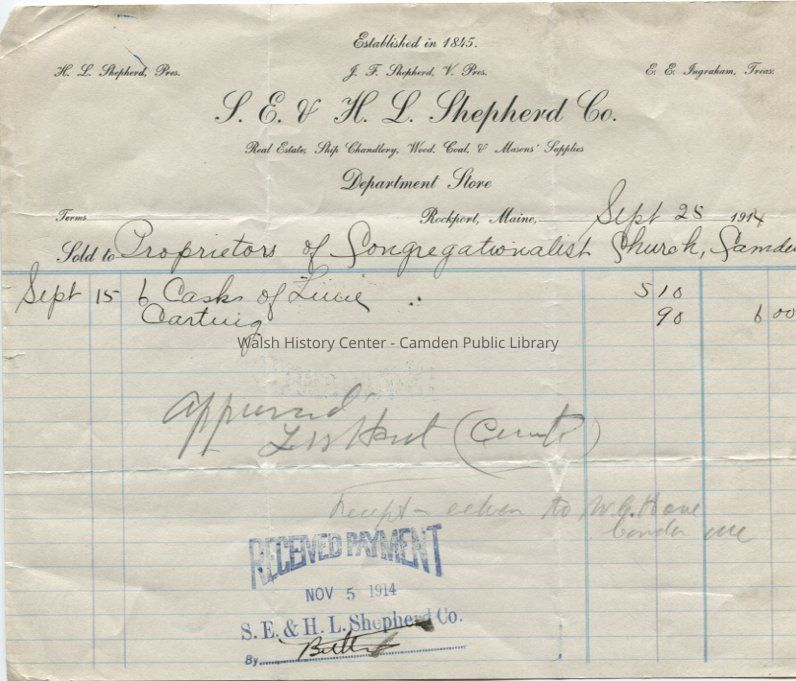 Established in 1845.
H. L. Shepherd, Pres. J. F. Shepherd, V. Pres. E. E. Ingraham, Treas.
S. E. & H. L. Shepherd Co.
Real Estate, Ship Chandlery, Wood, Coal, & Masons' Supplies
Department Store
Terms Rockport, Maine, Sept 25 1914
Sold to Proprietors of Congregationalist Church, Camde
Sept 15 6 Casks of Lime 510
Cartuig 90 6 00
Walsh History Center - Camden Public Library
Approved
(Cemt)
to W.G. Hove
RECEIVED PAYMENT
NOV 5 1914
S. E. & H. L. Shepherd Co.
By